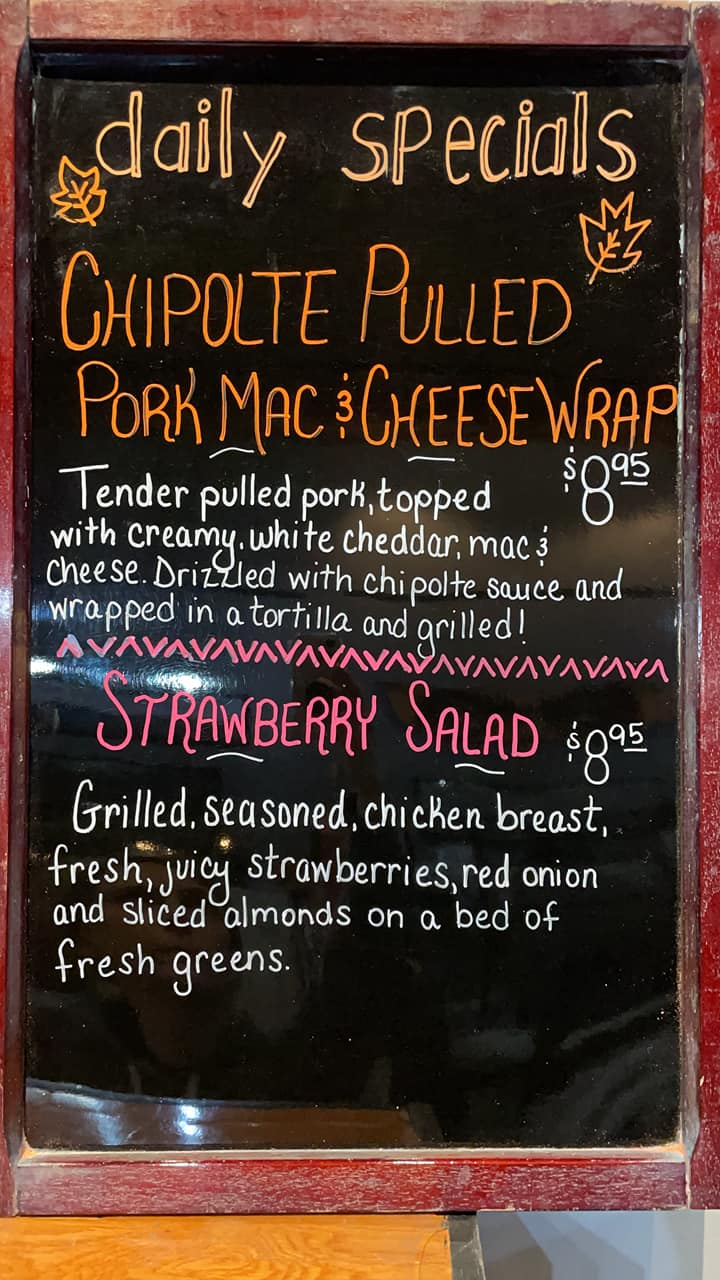 daily specials
CHIPOLTE PULLED
PORK MAC & CHEESE WRAP
$8.95
Tender pulled pork, topped
with creamy, white cheddar, mac &
cheese. Drizzled with chipolte sauce and
wrapped in a tortilla and grilled!
STRAWBERRY SALAD $8.95
Grilled, seasoned, chicken breast,
fresh, juicy strawberries, red onion
and sliced almonds on a bed of
fresh greens.